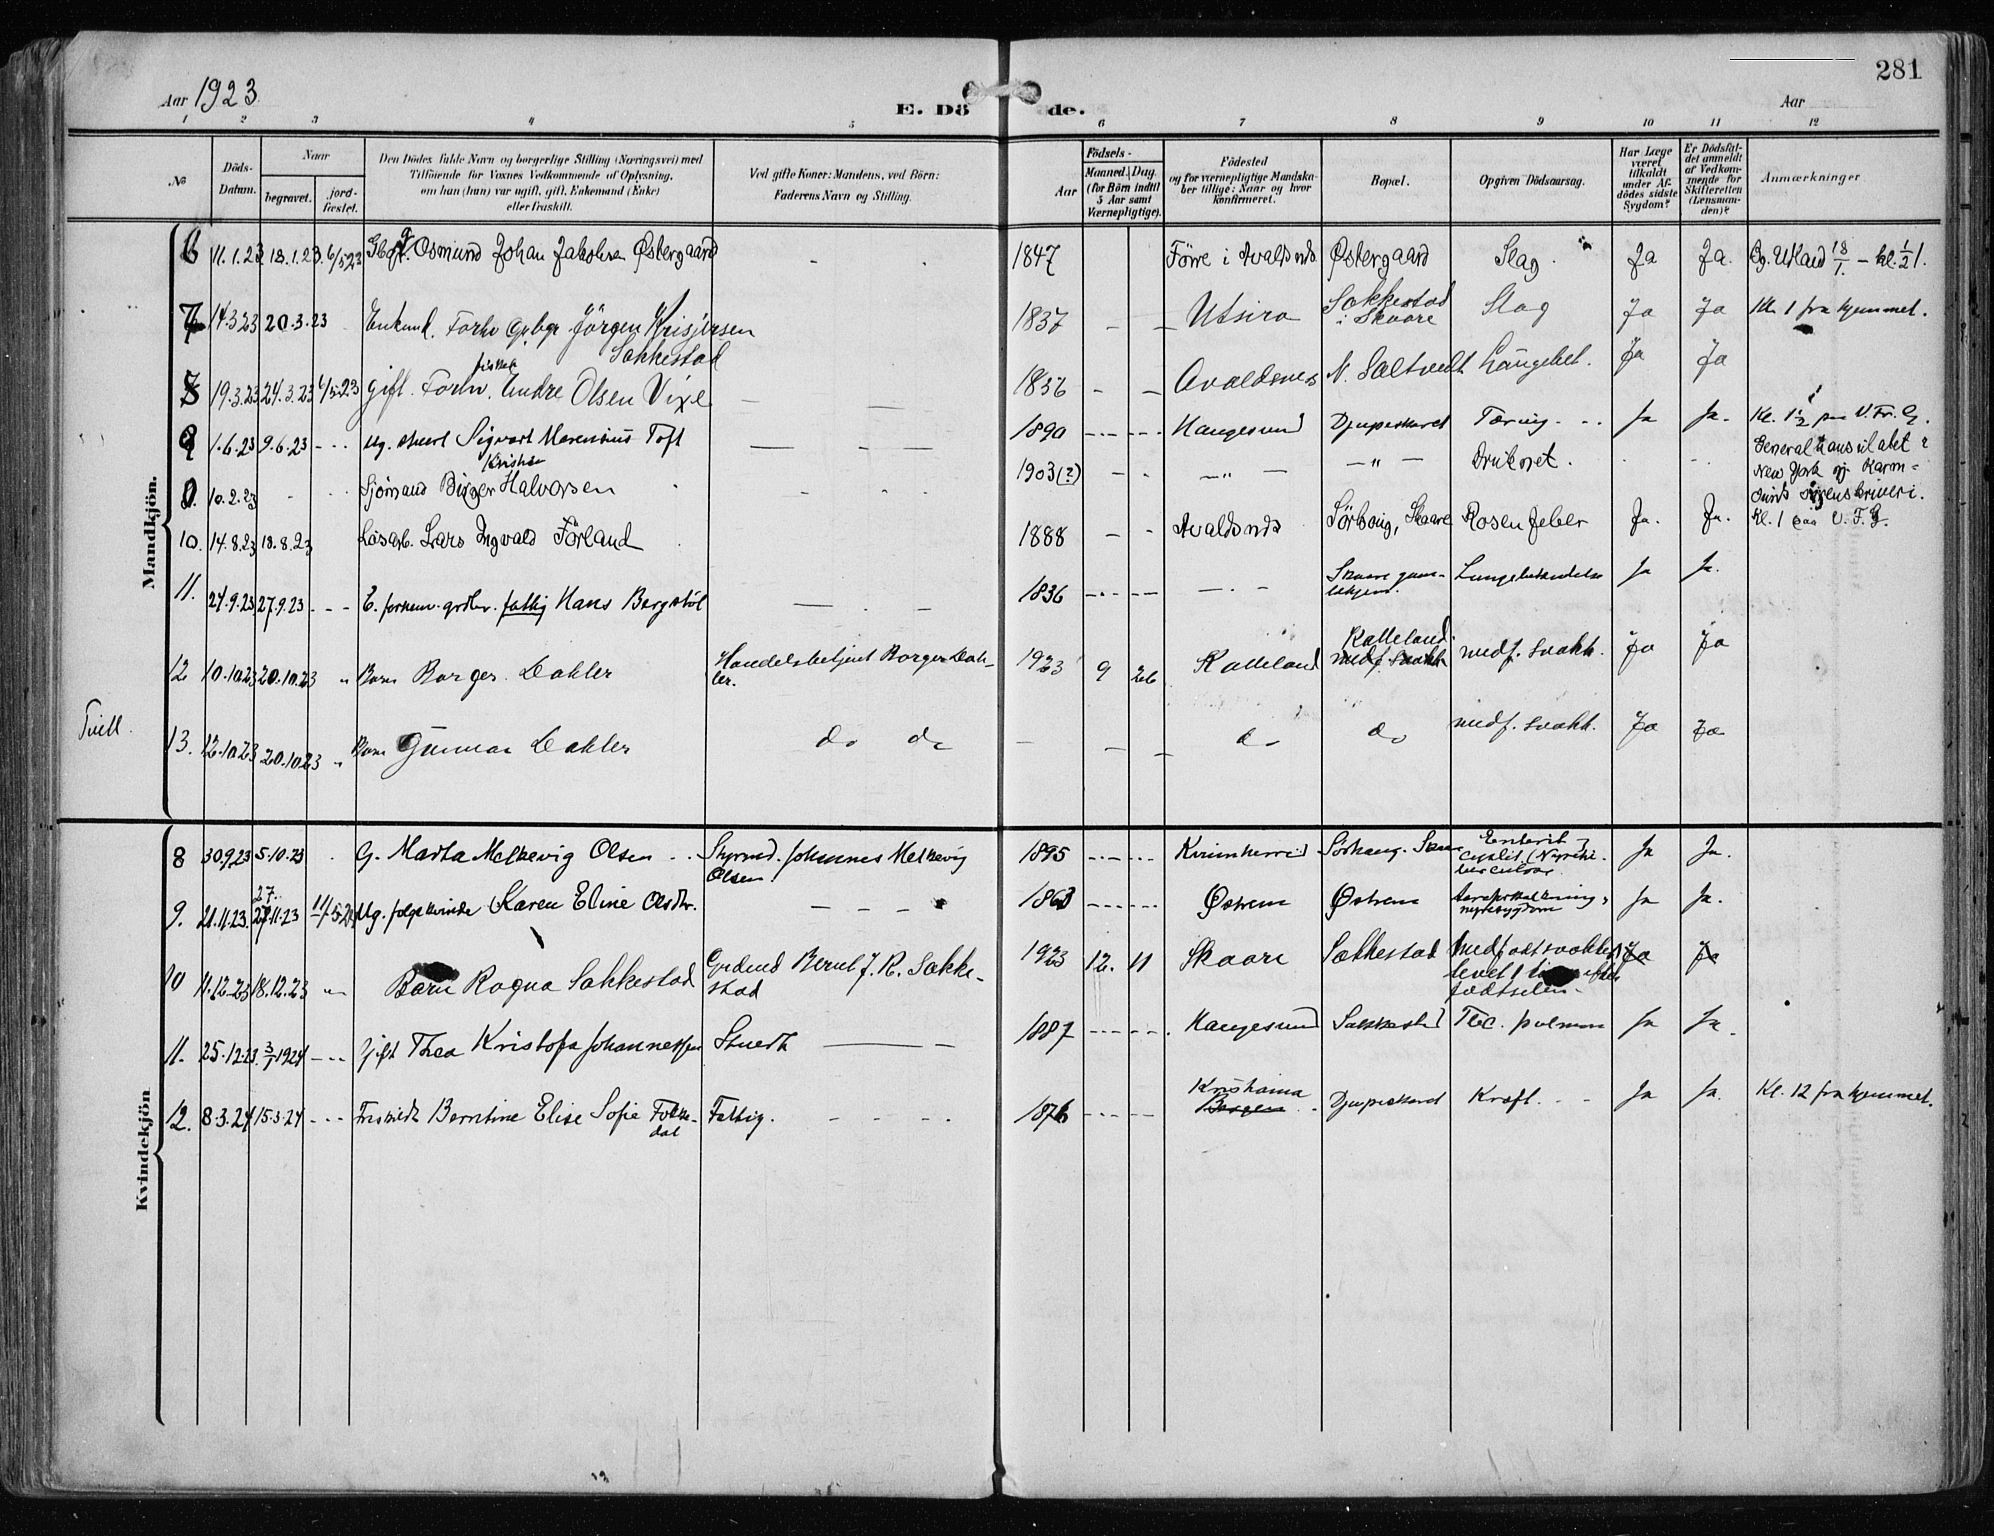 281
Aar 1923
E. Dö de.
Aar
1 2 3 4 5 6 7 8 9 10 11 12
No
Döds-Datum.
Naar
begravet.
jord-fæstet.
Den Dödes fulde Navn og borgerlige Stilling (Næringsvei) med
Tilföiende for Voxnes Vedkommende af Oplysning,
om han (hun) var ugift, gift, Enkemand (Enke)
eller fraskilt.
Ved gifte Koner: Mandens, ved Börn:
Faderens Navn og Stilling.
Födsels-
Aar
Maaned. Dag.
(for Börn indtil
5 Aar samt
Værnepligtige).
Födested
og for værnepligtige Mandska-
ber tillige: Naar og hvor
konfirmeret.
Bopæl.
Opgiven Dödsaarsag.
Har Læge
været
tilkaldt
under Af-
dödes sidste
Sygdom?
Er Dödsfal-
det anmeldt
af Vedkom-
mende for
Skifteretten
(Lensman-
den)?
Anmærkninger
Mandkjön.
6 11.1.23 18.1.23 6/5 23 Osmund Johan Jakobsen Østergaard - - 1847 Førre i Avaldsnes Østergaard Slag Ja Ja. kl. ½1.
7 14.3.23 20.3.23 Enkemd. Forhv. Gbgr. Jörgen Kristjersen
Sakkestad 1837 - - Utsira Sakkestad
i Skaare Slag Ja Ja Kl. 1 fra hjemmet.
19.3.23 24.3.23 6/5 23 gift. Forhv. fisker Endre Olsen Vixe - - 1836 - - Avaldsnes N. Saltvedt Lungebet. Ja Ja
1.6.23 9.6.23 - - - Ug. stuert Sigvart Marensius Toft - - 1890 Haugesund Djupeskaret Tæring Ja Ja.
10.2.23 Sjömand Birger Kristian Halvorsen 1903 (?) - - -"- -"- Druknet. Generalkonsulatet i
New York og Karm-
sunds sorenskriveri.
10. 14.8.23 18.8.23 Lösarb. Lars Ingvald Förland 1888 - - Avaldsnes Sörhaug, Skaare Rosenfeber Ja. Ja. Kl. 1 paa V. F. G.
11. 24.9.23 27.9.23 - - - E. forhenv. grdbr. fattig Hans Borgstöl 1836 Skaare gam-
lehjem. Lungebetændelse Ja Ja.
12 10.10.23 20.10.23 " Barn Borger Dahler Handelsbetjent Borger Dah-
ler. 1923 9 26 Kalleland Kalleland medf. svakh. Ja Ja
Tvill.
13. 12.10.23 20.10.23 " Barn Gunnar Dahler do do - - - do do medf. svakh. Ja Ja
Kvindekjön
8 30.9.23 5.10.23 G. Marta Melkevig Olsen Styrmd. Johannes Melkevig
Olsen 1895 Kvinnherred Sörhaug. Ja Ja.
9. 21.11.23 27.11.23 Ug. Karen Eline Olsdtr. - - - 1863 Østrem Østrem Aareforkalkning,
nyresygdom Ja Ja.
10 11.12.23 18.12.23 " Barn Ragna Sakkestad Grdmd Bernt J. R. Sakke-
stad 1923 12. 11 Skaare Sakkestad Medfødt svakhet
levet 1 time efter
fødselen Ja Ja
11. 25.12.23 3/1 1924 - - - Gift Thea Kristofa Johannessen Stuert - - 1887 Haugesund Sakkestad Tbc. pulmon Ja Ja.
12. 8.3.24 15.3.24 - - - Fraskildt Berntine Elise Sofie Folke-
dal Fattig. - - - 1876 Kristiania
Bergen Djupeskaret Kræft. Ja Ja. Kl. 12 fra hjemmet.